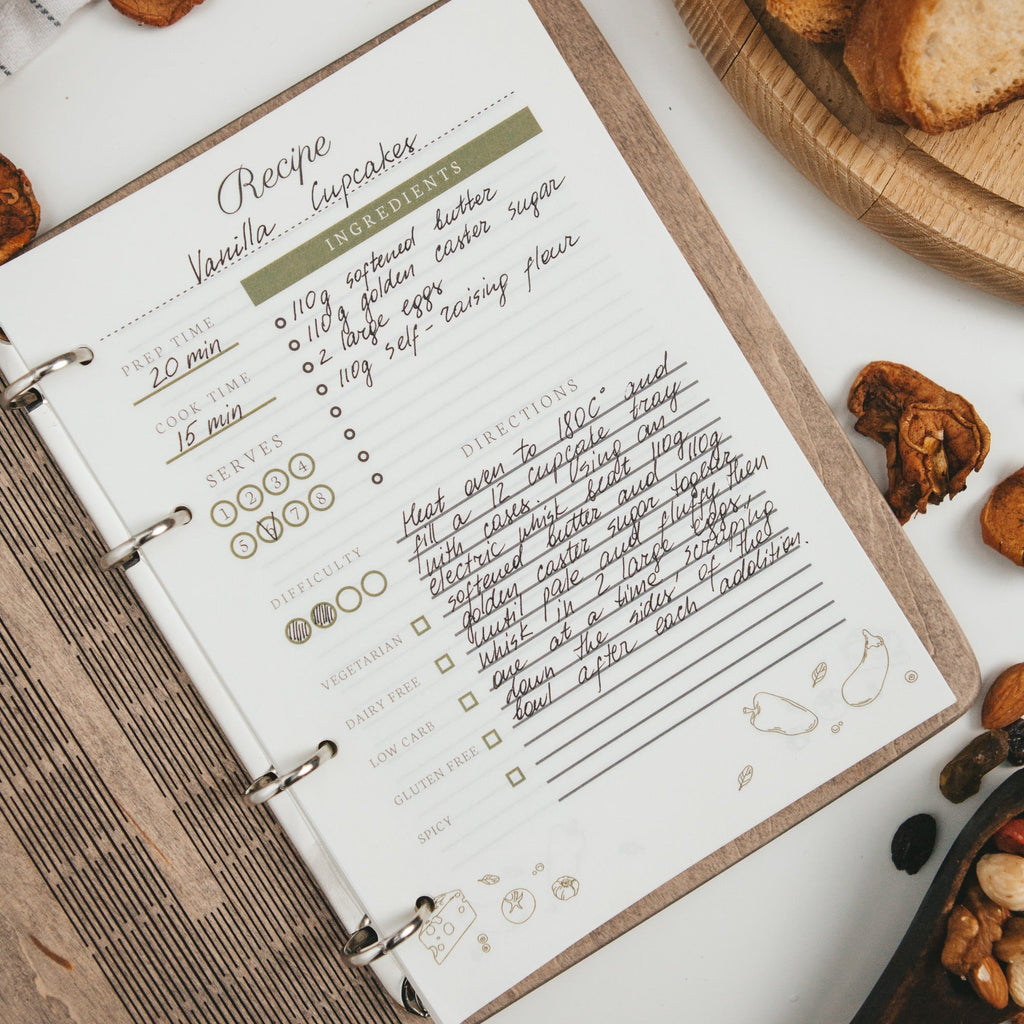 Recipe
Vanilla Cupcakes
INGREDIENTS
110g softened butter
110g golden caster sugar
2 large eggs
110g self-raising flour
PREP TIME
20 min
COOK TIME
15 min
SERVES
1 2 3 4
5 7 8
DIFFICULTY
VEGETARIAN
DAIRY FREE
LOW CARB
GLUTEN FREE
SPICY
DIRECTIONS
Heat oven to 180C° and
fill a 12 cupcake tray
with cases. Using an
electric whisk beat 110g
softened butter and 110g
golden caster sugar together
until pale and fluffy then
whisk in 2 large eggs,
one at a time, scraping
down the sides of the
bowl after each addition.